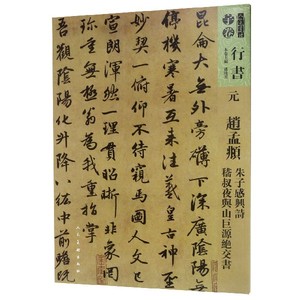 行書
元 趙孟頫
朱子感興詩
嵇叔夜與山巨源絕交書
崑侖大無外旁礴下深廣陰陽無
停機寒暑互來往皇古神聖
妙契一俯仰不待窺馬圖人文已
宣朗渾然一理貫昭晰非象罔
珍重無極翁為我重指掌
吾觀陰陽化升降八紘中前瞻既